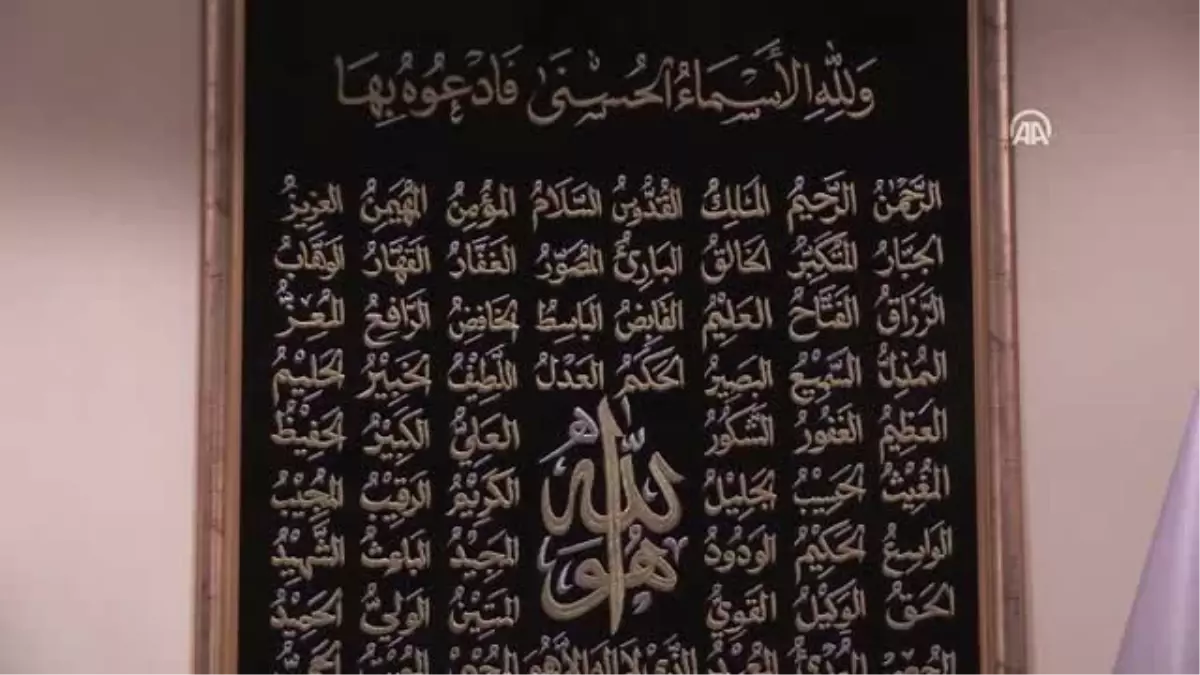 وَلِلَّهِ الْأَسْمَاءُ الْحُسْنَىٰ فَادْعُوهُ بِهَا
AA
الرَّحْمٰنُ الرَّحِيمُ الْمَلِكُ الْقُدُّوسُ السَّلَامُ الْمُؤْمِنُ الْمُهَيْمِنُ الْعَزِيزُ
الْجَبَّارُ الْمُتَكَبِّرُ الْخَالِقُ الْبَارِئُ الْمُصَوِّرُ الْغَفَّارُ الْقَهَّارُ الْوَهَّابُ
الرَّزَّاقُ الْفَتَّاحُ الْعَلِيمُ الْقَابِضُ الْبَاسِطُ الْخَافِضُ الرَّافِعُ الْمُعِزُّ
الْمُذِلُّ السَّمِيعُ الْبَصِيرُ الْحَكَمُ الْعَدْلُ اللَّطِيفُ الْخَبِيرُ الْحَلِيمُ
الْعَظِيمُ الْغَفُورُ الشَّكُورُ الْعَلِيُّ الْكَبِيرُ الْحَفِيظُ
الْمُغِيثُ الْحَسِيبُ الْجَلِيلُ الْكَرِيمُ الرَّقِيبُ الْمُجِيبُ
هو الله
الْوَاسِعُ الْحَكِيمُ الْوَدُودُ الْمَجِيدُ الْبَاعِثُ الشَّهِيدُ
الْحَقُّ الْوَكِيلُ الْقَوِيُّ الْمَتِينُ الْوَلِيُّ الْحَمِيدُ